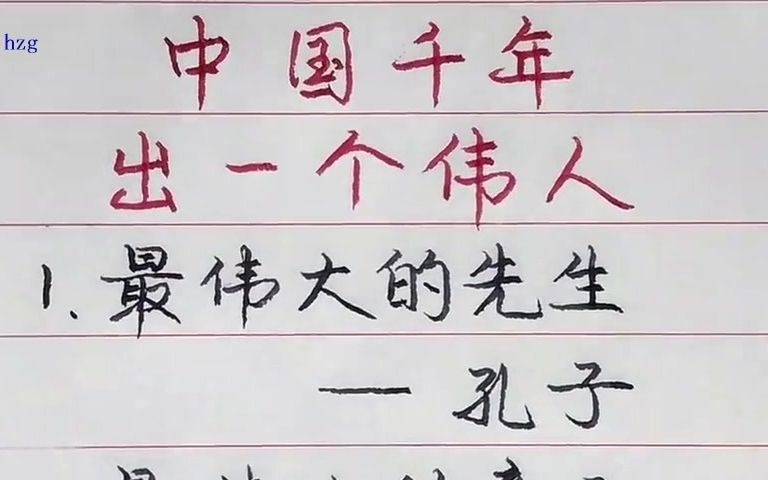 hzg
中国千年
出一个伟人
1、最伟大的先生
— 孔子